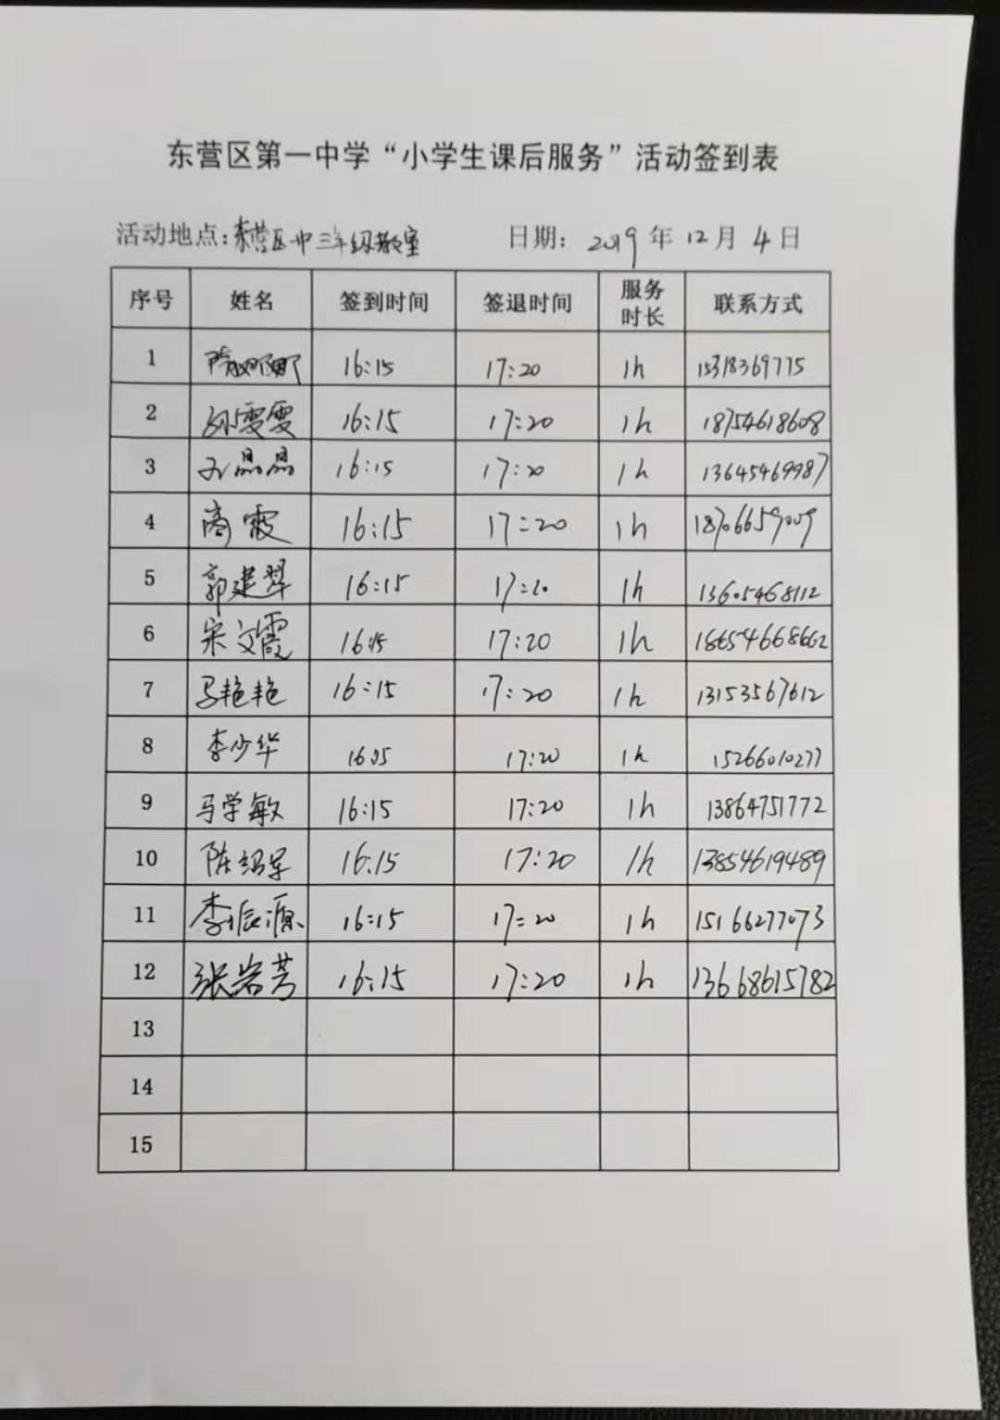 东营区第一中学“小学生课后服务”活动签到表
活动地点:东营区一中三年级教室 日期: 2019 年 12 月 4 日
序号 姓名 签到时间 签退时间 服务时长 联系方式
1 16:15 17:20 1h 15318369775
2 孙雯雯 16:15 17:20 1h 18754618608
3 孔晶晶 16:15 17:20 1h 13645469987
4 高霞 16:15 17:20 1h 18706659009
5 郭建翠 16:15 17:20 1h 13605468112
6 宋文霞 16:15 17:20 1h 18654668662
7 马艳艳 16:15 17:20 1h 13153567612
8 李少华 16:15 17:20 1h 15266010277
9 马学敏 16:15 17:20 1h 13864751772
10 陈绍军 16:15 17:20 1h 13854619489
11 李振源 16:15 17:20 1h 15166277073
12 张岩芳 16:15 17:20 1h 13668615782
13
14
15